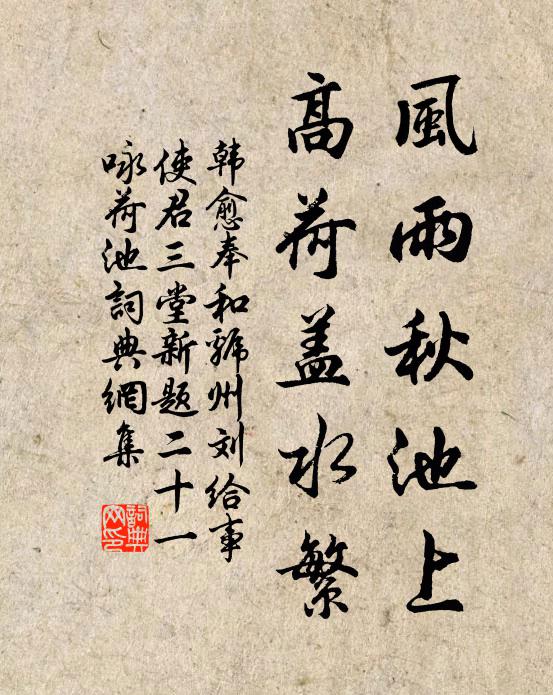 風雨秋池上
高荷盖水繁
韩愈奉和虢州刘给事
使君三堂新题二十一
咏荷池詞典網集
詞典网印